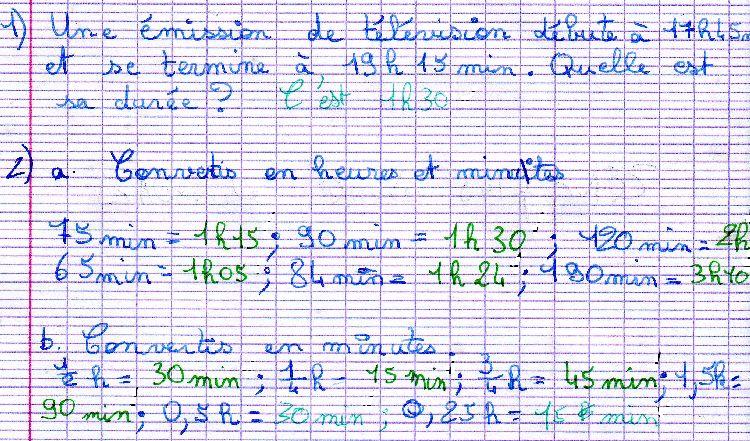 1) Une émission de télévision débute à 17h45m
et se termine à 19h 15 min. Quelle est
sa durée ? C'est 1h30
2) a. Convertis en heures et minutes
75 min = 1h15 ; 90 min = 1h30 ; 120 min = 2h
65 min = 1h05 ; 84 min = 1h24 ; 190 min = 3h10
b. Convertis en minutes :
1/2 h = 30 min ; 1/4 h = 15 min ; 3/4 h = 45 min ; 1,5h =
90 min ; 0,5h = 30 min ; 0,25h = 15 min